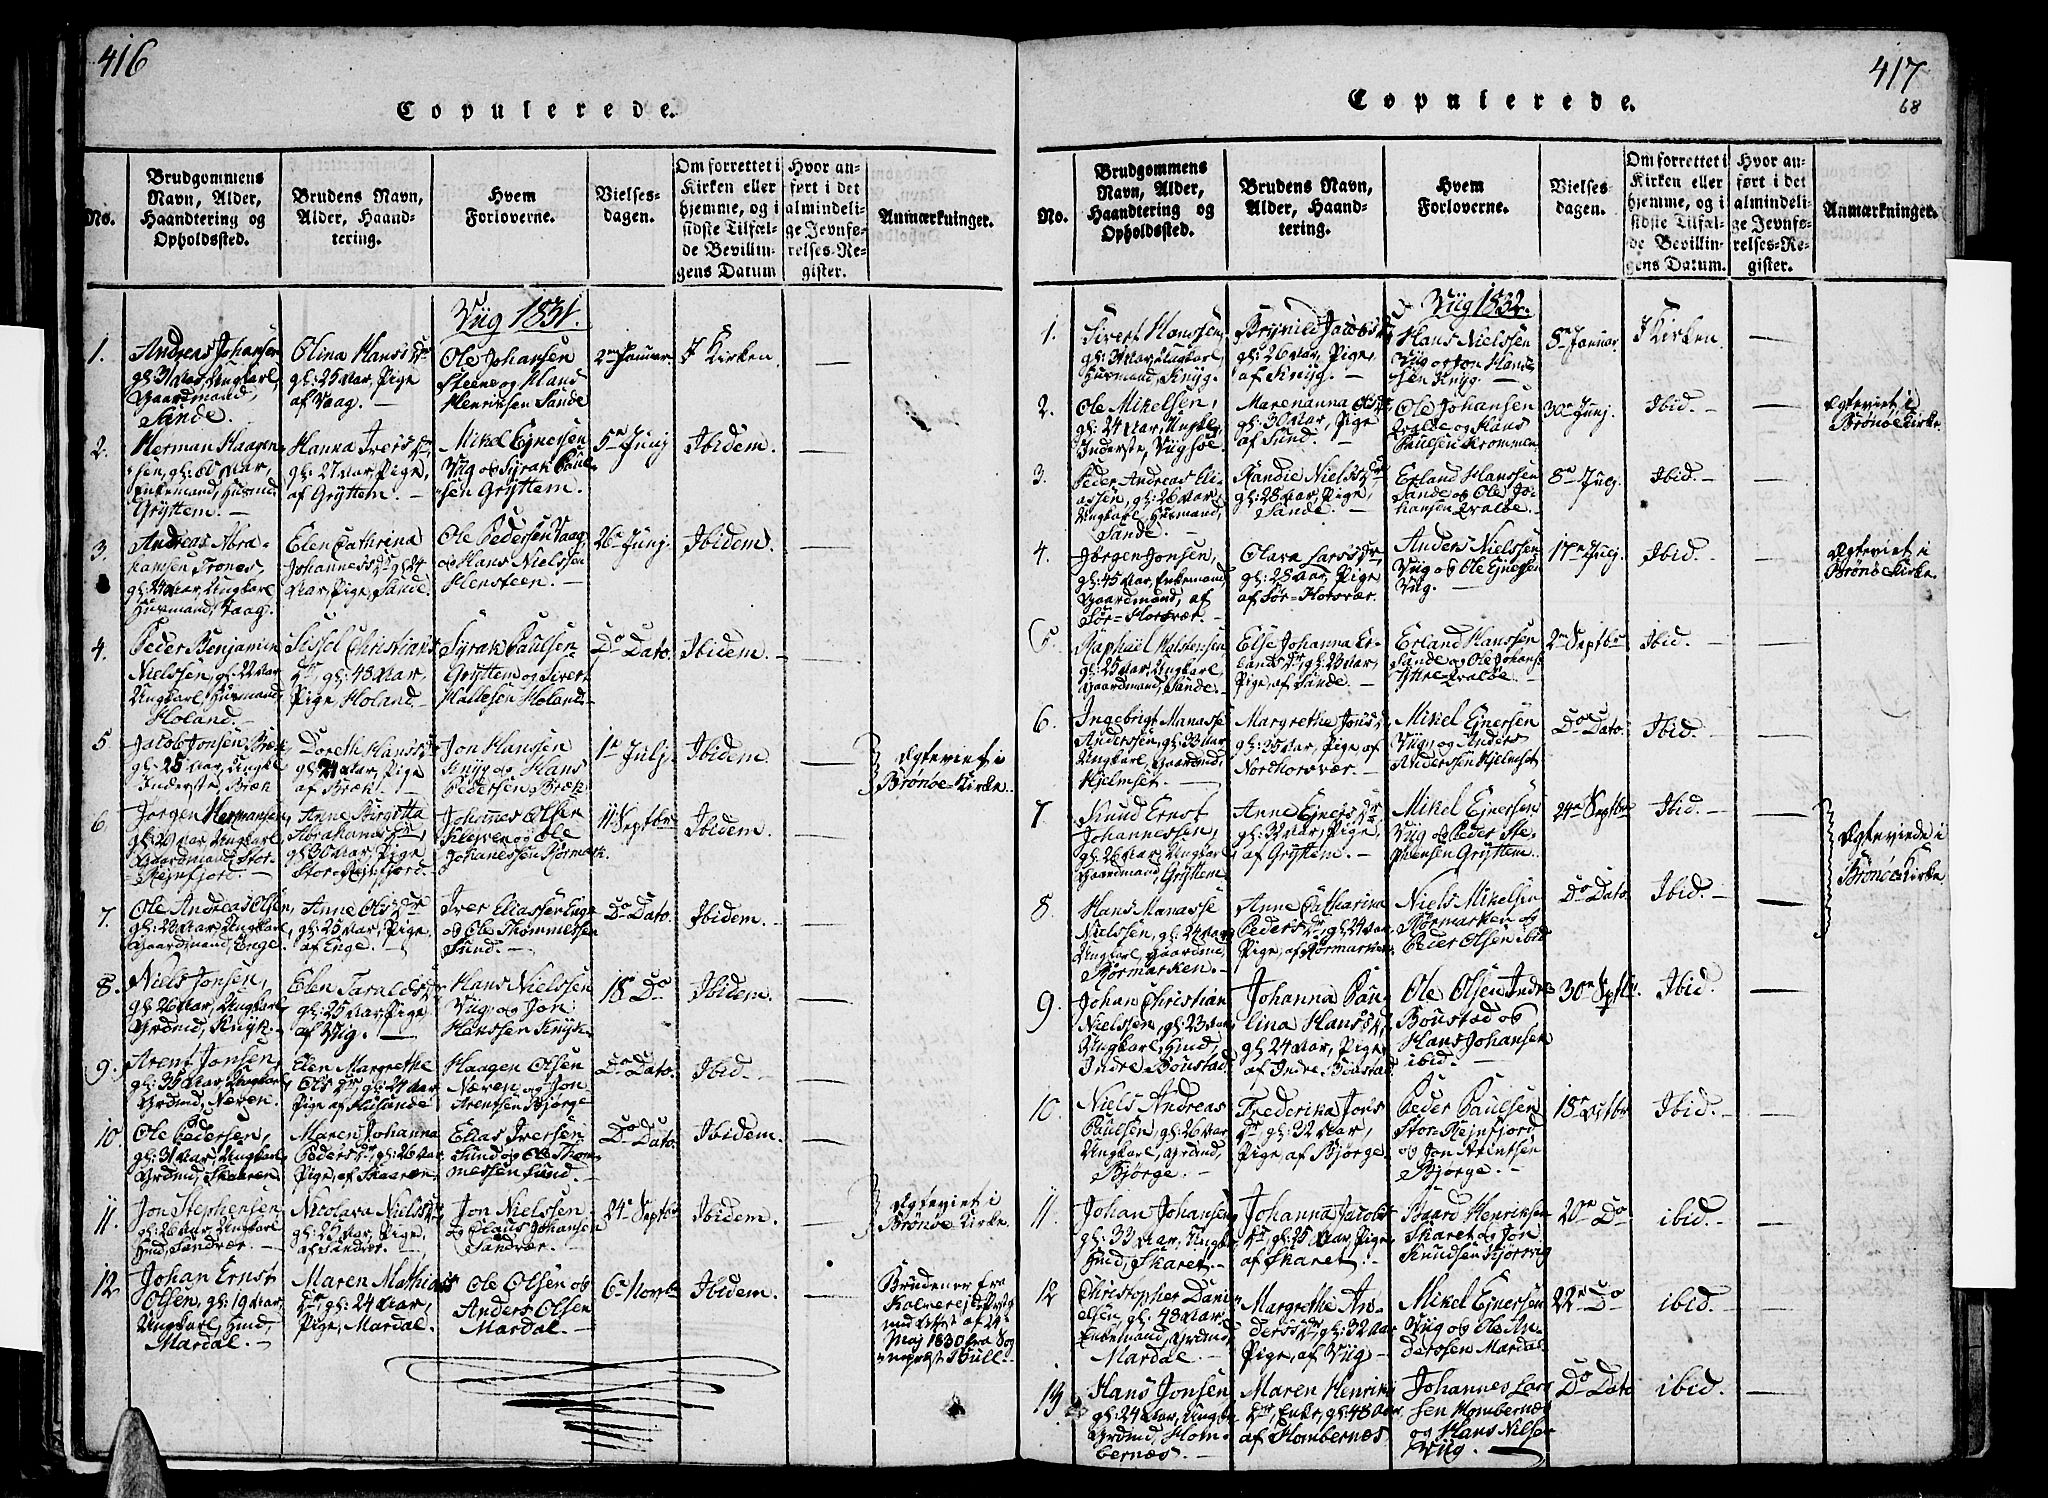 416
Copulerede.
No.
Brudgommens
Navn, Alder,
Haandtering og
Opholdssted.
Brudens Navn,
Alder, Haand-
tering.
Hvem
Forloverne.
Vielses-
dagen.
Om forrettet i
Kirken eller
hjemme, og i
sidste Tilfæl-
de Bevillin-
gens Datum
Hvor an-
ført i det
almindeli-
ge Jevnfø-
relses-Re-
gister.
Anmærkninger.
Viig 1831.
1.
Andreas Johansen
gl: 31 Aar, Ungkarl,
Gaardmand,
Sande.
Olina Hansdr
gl: 25 Aar, Pige
af Vaag. —
Ole Johansen
Steene og Hans
Henriksen Sande
2en Januar.
I Kirken
2.
Herman Haagen-
sen, gl: 60 Aar,
Enkemand, Husmd
Gryttem. —
Hanna Iversdr,
gl: 27 Aar, Pige,
af Gryttem. —
Mikel Ejnersen
Viig og Syrak Paul-
sen Gryttem.
5te Junj
Ibidem.
3.
Andreas Abra-
hamsen Trones
gl: 24 Aar, Ungkarl
Husmand, Vaag.
Elen Cathrina
Johannesdr gl: 24
Aar, Pige, Sande.
Ole Pedersen Vaag
og Hans Nielssen
Hensteen. —
26e Junj.
Ibidem.
4.
Peder Benjamin
Nielssen, gl: 22 Aar
Ungkarl, Husmand
Holand. —
Sissel Christians
dr, gl: 48 Aar,
Pige, Holand. —
Syrak Paulsen
Gryttem og Sivert
Hallesen Holand
Do Dato.
Ibidem. —
5
Jacob Jonsen Bræk
gl: 25 Aar, Ungkl
Inderste, Bræk
Doreth Hansdr
gl: 24 Aar, Pige
af Bræk. —
Jon Hanssen
Knyg og Hans
Pedersen Bræk
1e Julj.
Ibidem
Ægteviet i
Brønøe Kirke.
6.
Jørgen Hermansen
gl: 20 Aar, Ungkarl
Gaardmand, Stor-
Rejnfjord. —
Anne Birgitta
Abrahamsdr
gl: 30 Aar, Pige
Stor-Rejnfjord.
Johannes Olsen
Kleven og Ole
Johanessen Rørmark.
11 Septbr
Ibidem.
7.
Ole Andreas Olsen,
gl: 23 Aar, Ungkarl
Gaardmand, Enge.
Anne Olsdr
gl: 25 Aar, Pige,
af Enge. —
Iver Eliassen Enge
og Ole Thommessen
Sund. —
Do Dato.
Ibidem. —
8.
Niels Jonsen,
gl: 26 Aar, Ungkarl
Grdmd, Knyk. —
Elen Taraldsdr
gl: 25 Aar, Pige,
af Viig. —
Hans Nielssen
Viig, og Jon
Hanssen Knyk.
18 Do
Ibidem.
9.
Arent Jonsen,
gl: 35 Aar, Ungkarl,
Grdmd, Næven.
Elen Margrethe
Ols dr, gl: 24 Aar
Pige af Hulande
Haagen Olsen
Næven og Jon
Arentsen Bjørge
Do Dato.
Ibid. —
10.
Ole Pedersen,
gl: 31 Aar, Ungkarl,
Grdmd, Skaaren
Maren Johanna
Pedersdr, gl: 26 Aar
Pige, af Skaaren
Elias Iversen
Sund og Ole Thom-
messen Sund. —
Do Dato
Ibidem. —
11.
Jon Stephensen
gl: 26 Aar, Ungkarl
Hmd, Sandvær. —
Nicolava Nielsdr
gl: 25 Aar, Pige,
af Sandvær. —
Jon Nielssen
og Claus Johansen
Sandvær. —
Ibidem.
Ægteviet i
Brønøe Kirke.
12
Johan Ernst
Olsen, gl: 19 Aar,
Ungkarl, Hmd,
Mardal. —
Maren Mathias
dr, gl: 24 Aar,
Pige, Mardal.
Ole Olsen og
Anders Olsen
Mardal. —
6e Novbr
Ibidem. —
Bruden er fra
Maj 1830 fra Sog-
neprest Bull. —
417
68
Copulerede.
No.
Brudgommens
Navn, Alder,
Haandtering og
Opholdssted.
Brudens Navn,
Alder, Haand-
tering.
Hvem
Forloverne.
Vielses-
dagen.
Om forrettet i
Kirken eller
hjemme, og i
sidste Tilfæl-
de Bevillin-
gens Datum.
Hvor an-
ført i det
almindeli-
ge Jevnfø-
relses-Re-
gister.
Anmærkninger.
Viig 1832.
1.
Sivert Hanssen,
gl: 34 Aar, Ungkarl,
Husmand, Knyg.
Brynild Jacobsdr
gl: 26 Aar, Pige,
af Knyg. —
Hans Nielssen
Viig og Jon Hans-
sen Knyg. —
8e Januar.
I Kirken
2.
Ole Mikelsen,
gl: 24 Aar, Ungkl
Inderste, Viigsøe
Marenanna Olsdr
gl: 30 Aar, Pige
af Sund. —
Ole Johansen
Qvaløe og Hans
Paulsen Krommen
30e Junj.
Ibid. —
Ægteviet i
Brønøe Kirke.
3.
Peder Andreas Eli-
assen, gl: 26 Aar,
Ungkarl, Husmand,
Sande. —
Randie Nielsdr
gl: 28 Aar, Pige,
Sande. —
Erland Hanssen
Sande og Ole Jo-
hansen Qvaløe.
8e Julj.
Ibid. —
4.
Jørgen Jonsen,
gl: 45 Aar, Enkemand
Gaardmand, af
Sør-Horsvær. —
Olava Larsdr,
gl: 28 Aar, Pige
af Sør-Horsvær.
Anders Nielssen
Viig og Ole Ejnersen
Viig. —
17e Julj.
Ibid. —
Ægteviet i
Brønøe Kirke.
5.
Raphael Halstensen
gl: 25 Aar, Ungkarl
Gaardmand, Sande.
Else Johanna Er-
lands dr, gl: 23 Aar,
Pige, af Sande.
Erland Hanssen
Sande og Ole Johans
Ytre-Qvaløe.
2en Septbr
Ibid. —
6.
Ingebrigt Manasse
Anderssen, gl: 33 Aar
Ungkarl, Gaardmand,
Hjelmset. —
Margrethe Jonsdr
gl: 35 Aar, Pige af
Nordhorsvær. —
Mikel Ejnersen
Viig, og Anders
Anderssen Hjelmset
Do Dato.
Ibid
7
Knud Ernst
Johannessen,
gl: 26 Aar, Ungkarl
Gaardmand, Gryttem
Anne Ejnersdr
gl: 32 Aar, Pige,
af Gryttem. —
Mikel Ejnersen
Viig og Peder Ste-
phensen Gryttem.
24e Septbr
Ibid. —
Ægteviede i
Brønøe Kirke.
8.
Hans Manasse
Nielssen, gl: 24 Aar
Ungkarl, Gaardmd,
Rørmarken. —
Anne Catharina
Pedersdr, gl: 24 Aar
Pige, af Rørmarken
Niels Mikelsen
Rørmarken og
Peder Olsen ibid
Do Dato.
Ibid. —
9.
Johan Christian
Nielssen, gl: 23 Aar
Ungkarl, Hmd,
Indre Boustad.
Johanna Pau-
lina Hansdr
gl: 24 Aar, Pige
af Indre Boustad
Ole Olsen Indre
Boustad og
Hans Johansen
ibid. —
30e Septbr.
Ibid.
10.
Niels Andreas
Paulsen, gl: 26 Aar
Ungkarl, Grdmd,
Bjørge. —
Frederika Jons
dr, gl: 32 Aar,
Pige, af Bjørge
Peder Paulsen
Stor-Rejnfjord
og Jon Arentsen
Bjørge. —
18e Octbr
Ibid. —
11.
Johan Johansen
gl: 33 Aar, Ungkarl
Hmd, Skaret. —
Johanna Jacobs
dr, gl: 25 Aar, Pige,
af Skaret. —
Baard Henriksen
Skaret og Jon
Knudsen Kjørvig
20e Do
ibid. —
12
Christopher Dani-
elsen, gl: 48 Aar,
Enkemand, Grdmd,
Mardal. —
Margrethe An-
dersdr, gl: 32 Aar
Pige, af Viig —
Mikel Ejnersen
Viig og Ole An-
derssen Mardal
22e Do
ibid. —
13.
Hans Jonsen
gl: 24 Aar, Ungkl
Grdmd, Hom-
bernæs. —
Maren Henriks
dr, Enke, gl: 48 Aar
af Hombernæs
Johannes Lars
sen Hombernæs
og Hans Nilsen
Viig. —
Do Dato
ibid.